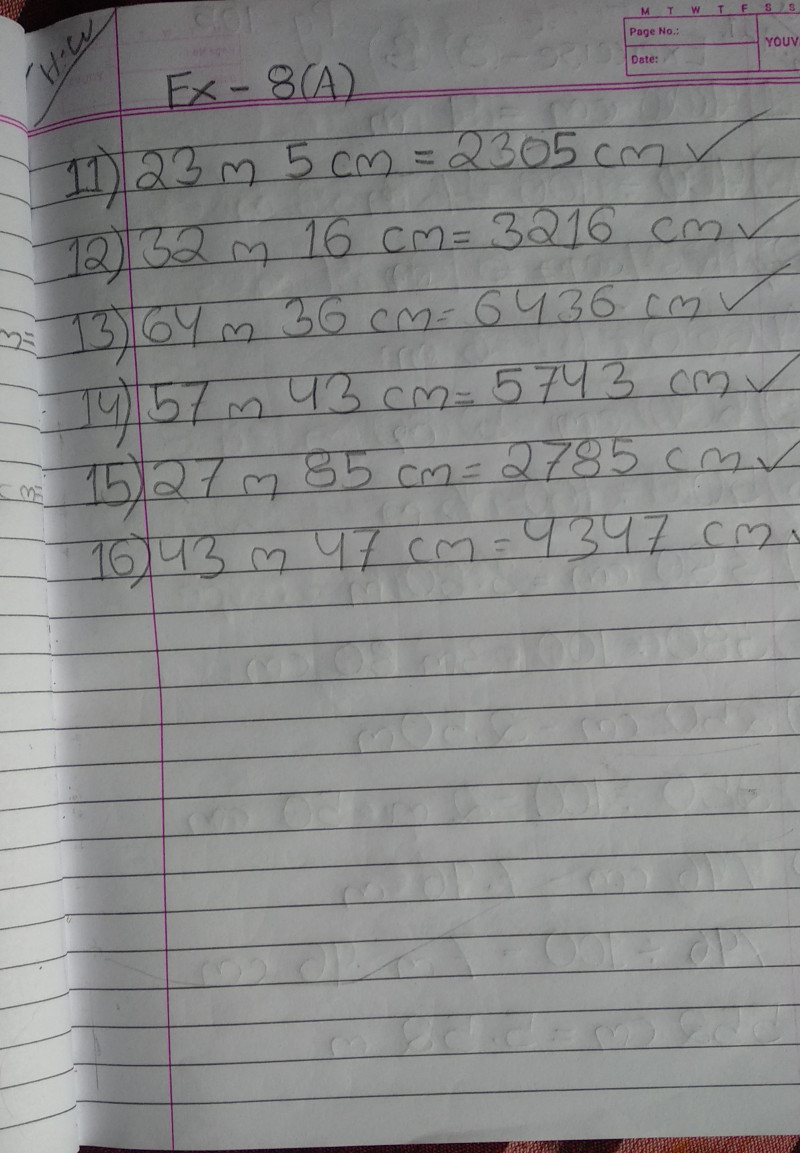 M T W T F S S
Page No.:
Date:
YOUV
H.W
Ex - 8(A)
11) 23 m 5 cm = 2305 cm ✓
12) 32 m 16 cm = 3216 cm ✓
13) 64 m 36 cm = 6436 cm ✓
14) 57 m 43 cm = 5743 cm ✓
15) 27 m 85 cm = 2785 cm ✓
16) 43 m 47 cm = 4347 cm
m=
cm=